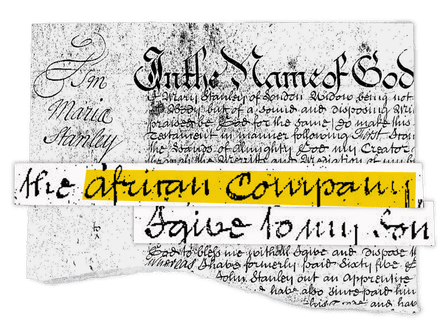 Tm
Maria
Stanley
In the Name of God
I Mary Stanley of London Widow being not
Body but of a Sound and disposing
praised be God for the same do make this
Testament in manner following First
the Hands of Almighty God my Creator
the Meritts and Mediation of my
the African Company
I give to my Son
God to bless me withall I give and dispose
Whereas I have formerly paid Sixty five
John Stanley out an Apprentice
have also since paid him
this and